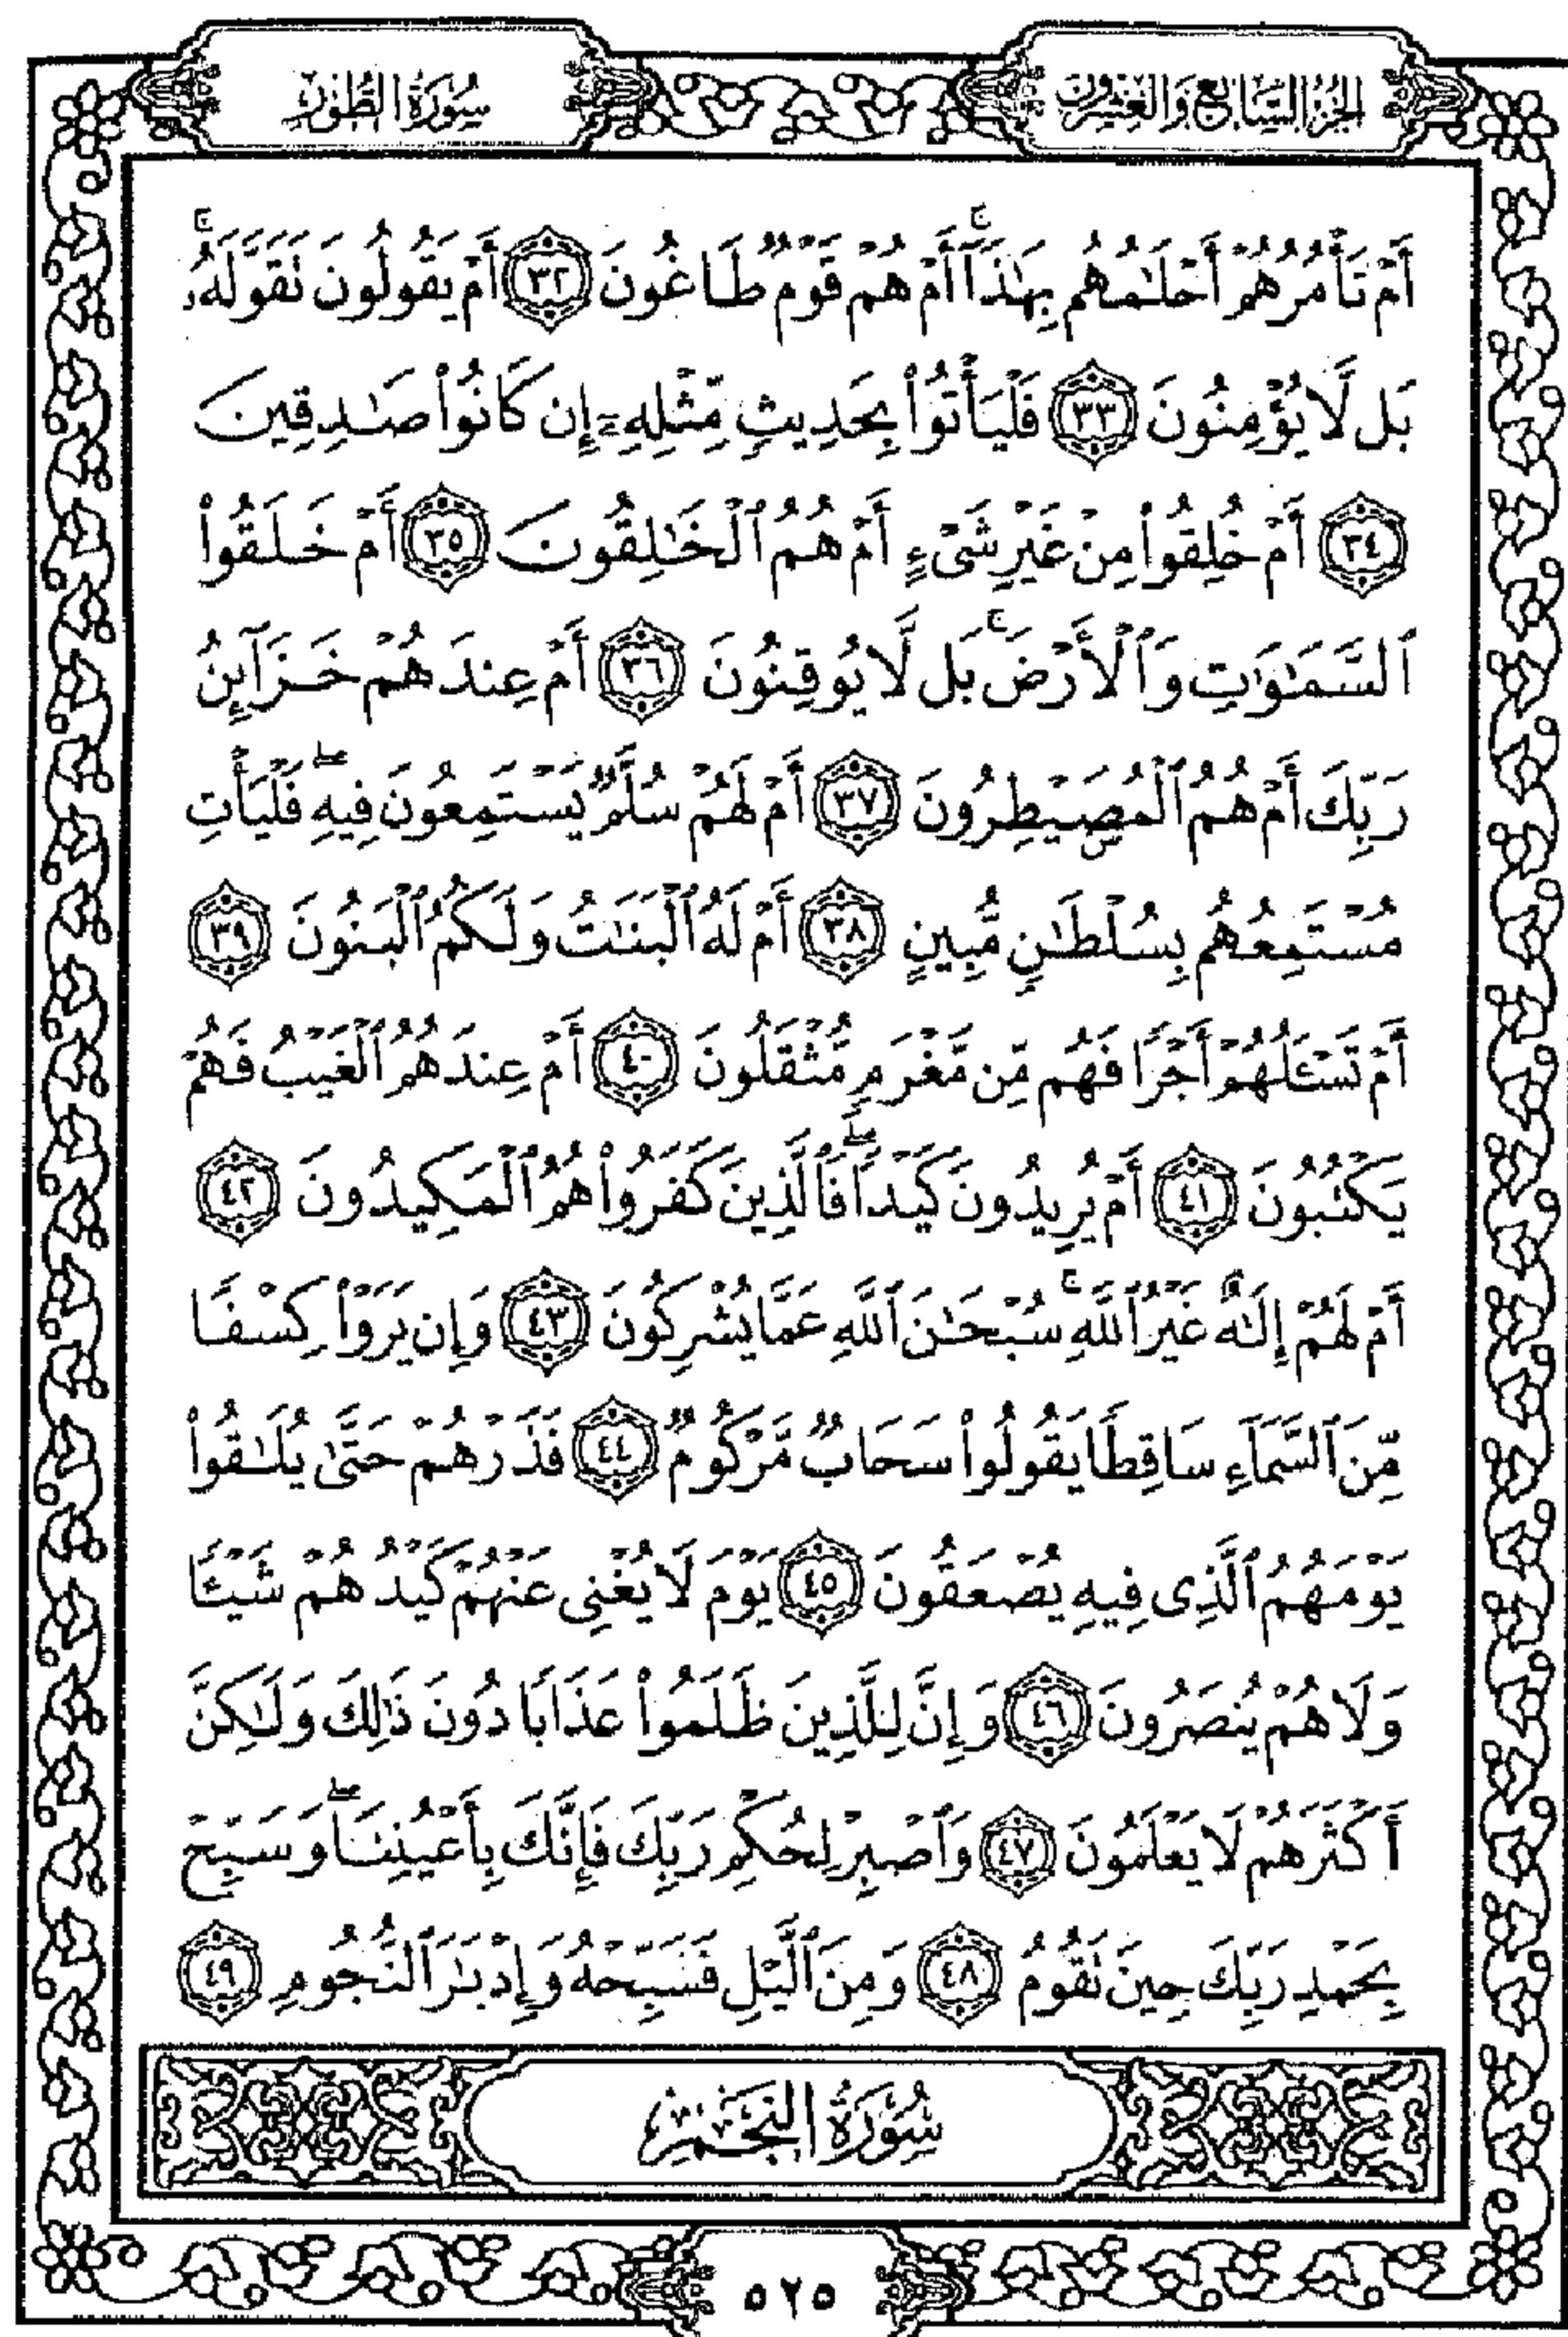 الجزء السابع والعشرون
سورة الطور
أَمْ تَأْمُرُهُمْ أَحْلَـٰمُهُم بِهَـٰذَآ ۚ أَمْ هُمْ قَوْمٌ طَاغُونَ ٣٢ أَمْ يَقُولُونَ تَقَوَّلَهُۥ ۚ
بَل لَّا يُؤْمِنُونَ ٣٣ فَلْيَأْتُوا۟ بِحَدِيثٍ مِّثْلِهِۦٓ إِن كَانُوا۟ صَـٰدِقِينَ
٣٤ أَمْ خُلِقُوا۟ مِنْ غَيْرِ شَىْءٍ أَمْ هُمُ ٱلْخَـٰلِقُونَ ٣٥ أَمْ خَلَقُوا۟
ٱلسَّمَـٰوَٰتِ وَٱلْأَرْضَ ۚ بَل لَّا يُوقِنُونَ ٣٦ أَمْ عِندَهُمْ خَزَآئِنُ
رَبِّكَ أَمْ هُمُ ٱلْمُصَۣيْطِرُونَ ٣٧ أَمْ لَهُمْ سُلَّمٌ يَسْتَمِعُونَ فِيهِ ۖ فَلْيَأْتِ
مُسْتَمِعُهُم بِسُلْطَـٰنٍ مُّبِينٍ ٣٨ أَمْ لَهُ ٱلْبَنَـٰتُ وَلَكُمُ ٱلْبَنُونَ ٣٩
أَمْ تَسْـَٔلُهُمْ أَجْرًا فَهُم مِّن مَّغْرَمٍ مُّثْقَلُونَ ٤٠ أَمْ عِندَهُمُ ٱلْغَيْبُ فَهُمْ
يَكْتُبُونَ ٤١ أَمْ يُرِيدُونَ كَيْدًا ۖ فَٱلَّذِينَ كَفَرُوا۟ هُمُ ٱلْمَكِيدُونَ ٤٢
أَمْ لَهُمْ إِلَـٰهٌ غَيْرُ ٱللَّهِ ۚ سُبْحَـٰنَ ٱللَّهِ عَمَّا يُشْرِكُونَ ٤٣ وَإِن يَرَوْا۟ كِسْفًا
مِّنَ ٱلسَّمَآءِ سَاقِطًا يَقُولُوا۟ سَحَابٌ مَّرْكُومٌ ٤٤ فَذَرْهُمْ حَتَّىٰ يُلَـٰقُوا۟
يَوْمَهُمُ ٱلَّذِى فِيهِ يُصْعَقُونَ ٤٥ يَوْمَ لَا يُغْنِى عَنْهُمْ كَيْدُهُمْ شَيْـًٔا
وَلَا هُمْ يُنصَرُونَ ٤٦ وَإِنَّ لِلَّذِينَ ظَلَمُوا۟ عَذَابًا دُونَ ذَٰلِكَ وَلَـٰكِنَّ
أَكْثَرَهُمْ لَا يَعْلَمُونَ ٤٧ وَٱصْبِرْ لِحُكْمِ رَبِّكَ فَإِنَّكَ بِأَعْيُنِنَا ۖ وَسَبِّحْ
بِحَمْدِ رَبِّكَ حِينَ تَقُومُ ٤٨ وَمِنَ ٱلَّيْلِ فَسَبِّحْهُ وَإِدْبَـٰرَ ٱلنُّجُومِ ٤٩
سُورَةُ النَّجْمِ
٥٢٥